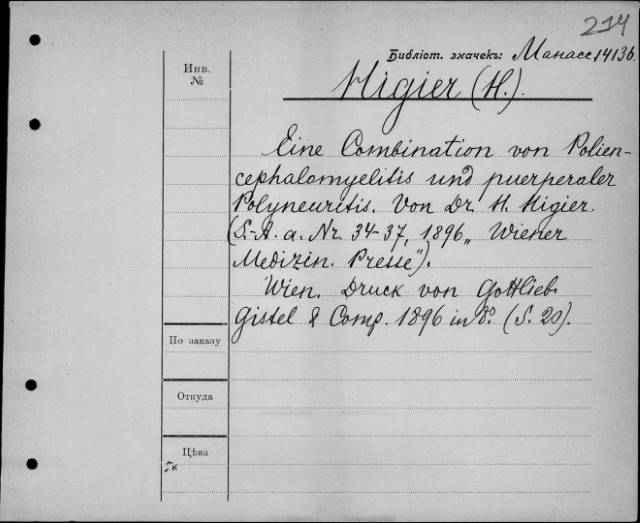 214
Библіот. значекъ: Манассе 14136.
Инв.
№
Higier (H.).
Eine Combination von Polien-
cephalomyelitis und puerperaler
Polyneuritis. Von Dr. H. Higier.
(S.-A. a. Nr. 34-37, 1896 „Wiener
Medizin. Presse").
Wien. Druck von Gottlieb
Gistel & Comp. 1896 in 8°. (S. 20).
По заказу
Откуда
Цѣна